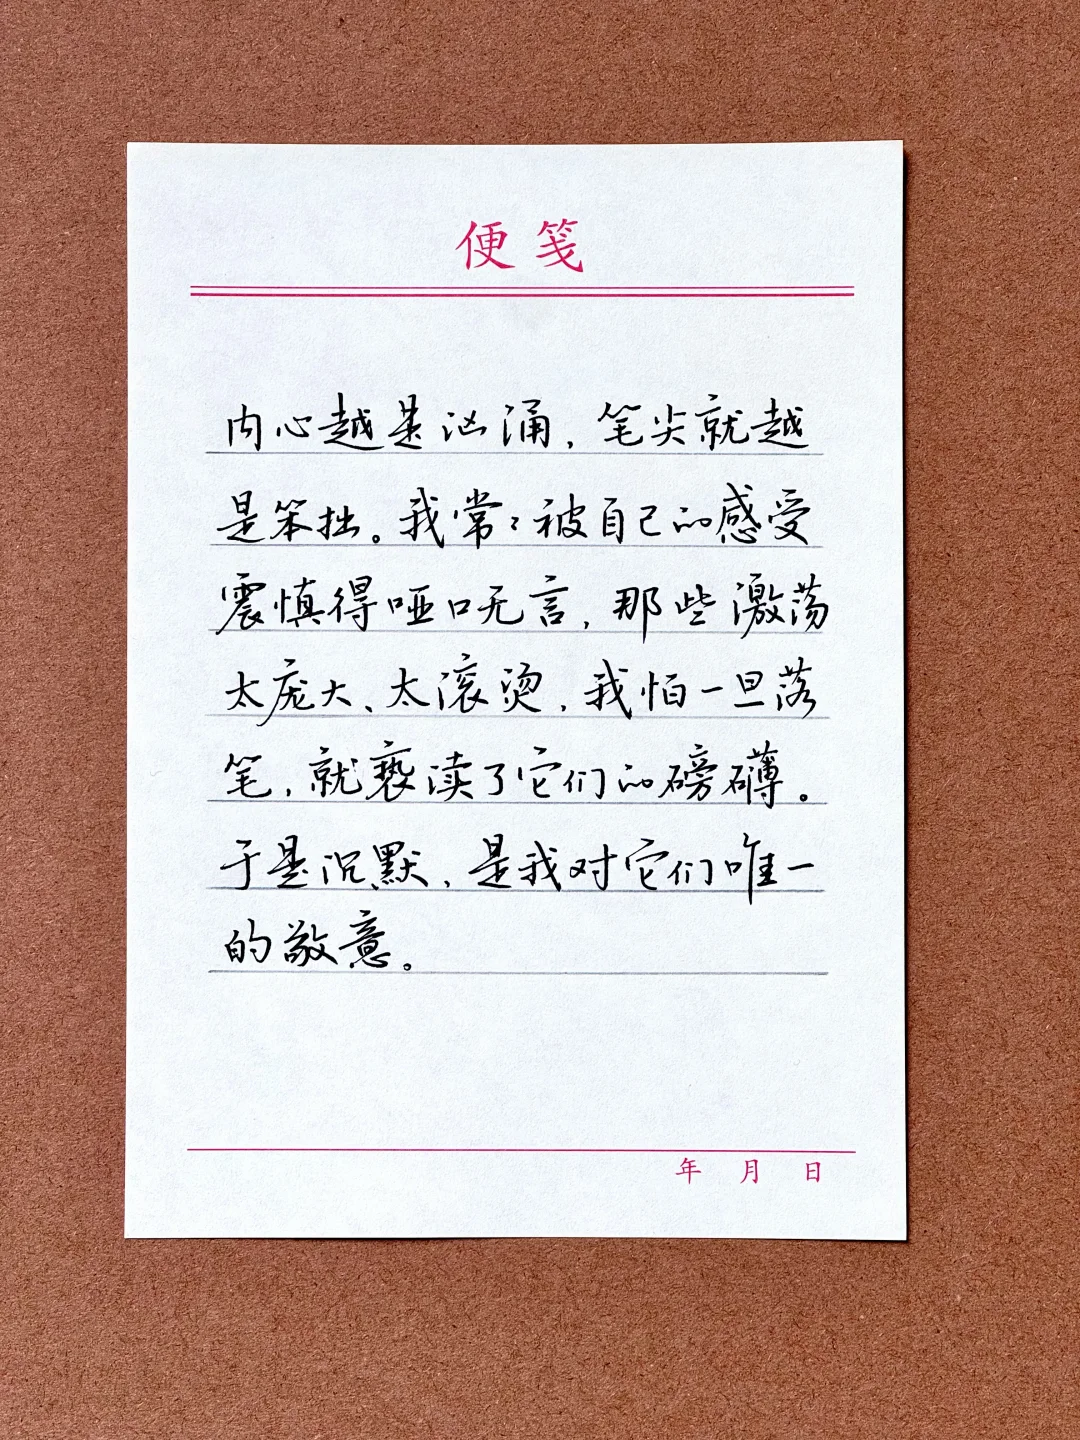 便笺
内心越是汹涌，笔尖就越
是笨拙。我常常被自己的感受
震慎得哑口无言，那些激荡
太庞大、太滚烫，我怕一旦落
笔，就亵渎了它们的磅礴。
于是沉默，是我对它们唯一
的敬意。
年 月 日